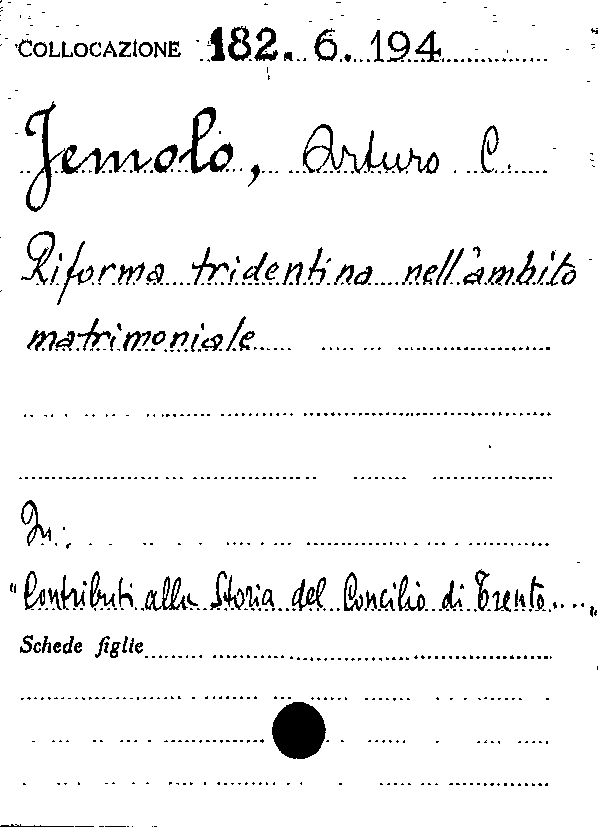 COLLOCAZIONE 182. 6. 194
Jemolo, Arturo C.
Riforma tridentina nell'àmbito
matrimoniale
In:
"Contributi alla Storia del Concilio di Trento...."
Schede figlie